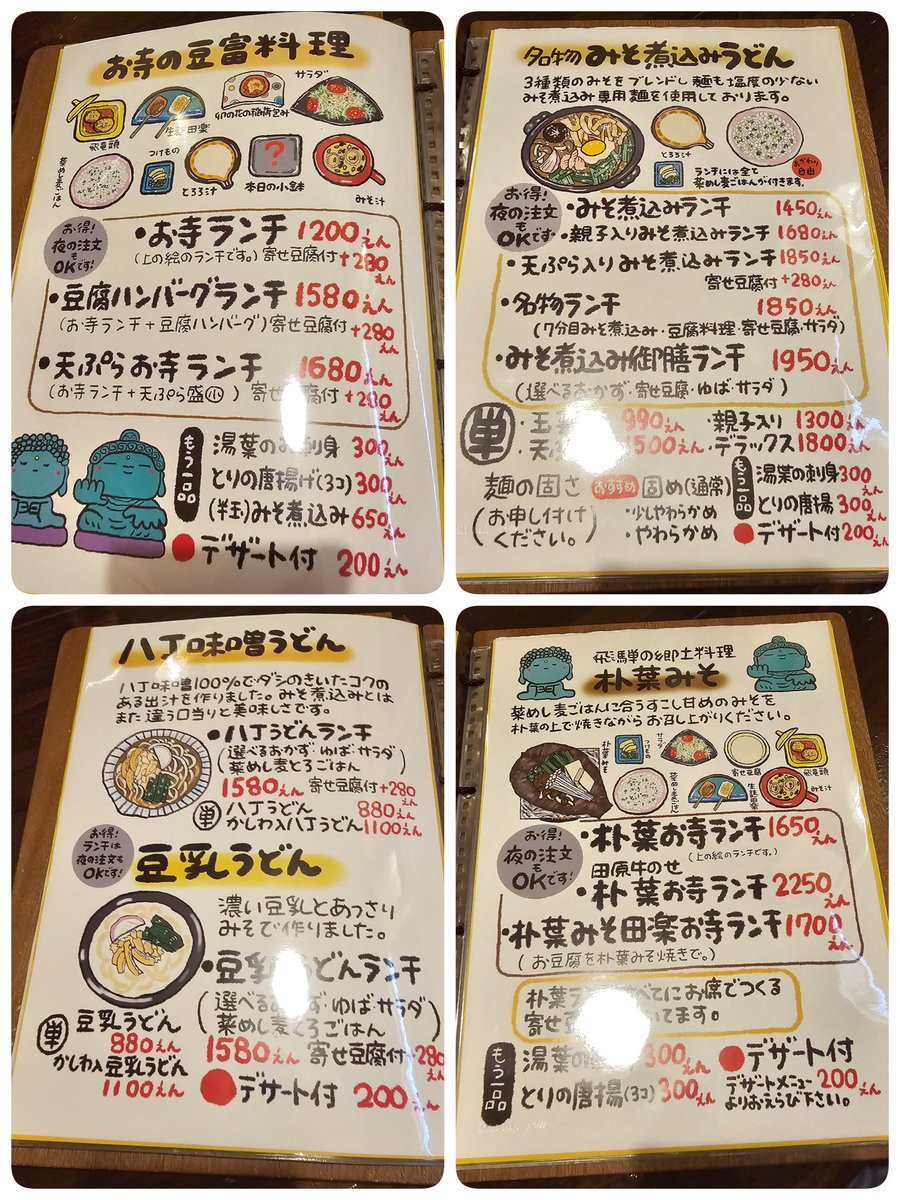 お寺の豆富料理
サラダ
卯の花の稲荷包み
生麩田楽
飛竜頭
つけもの
とろろ汁
本日の小鉢
みそ汁
菜めし麦ごはん
?
お得!
夜の注文
も
OKです!
・お寺ランチ 1200えん
(上の絵のランチです。) 寄せ豆腐付+280えん
・豆腐ハンバーグランチ 1580えん
(お寺ランチ+豆腐ハンバーグ) 寄せ豆腐付+280えん
・天ぷらお寺ランチ 1680えん
(お寺ランチ+天ぷら盛小) 寄せ豆腐付+280えん
もう一品
湯葉のお刺身 300えん
とりの唐揚げ(3コ) 300えん
(半玉)みそ煮込み 650えん
デザート付 200えん
名物みそ煮込みうどん
3種類のみそをブレンドし麺も塩度の少ない
みそ煮込み専用麺を使用しております。
とろろ汁
おかわり自由
ランチには全て
菜めし麦ごはんが付きます。
お得!
夜の注文
も
OKです!
・みそ煮込みランチ 1450えん
・親子入りみそ煮込みランチ 1680えん
・天ぷら入りみそ煮込みランチ 1850えん
寄せ豆腐付+280えん
・名物ランチ 1850えん
(7分目みそ煮込み・豆腐料理・寄せ豆腐・サラダ)
・みそ煮込み御膳ランチ 1950えん
(選べるおかず・寄せ豆腐・ゆば・サラダ)
単
・玉 990えん ・親子入り 1300えん
・天 1500えん ・デラックス 1800えん
麺の固さ おすすめ 固め(通常)
(お申し付けください。) ・少しやわらかめ
・やわらかめ
もう一品
湯葉の刺身 300えん
とりの唐揚 300えん
デザート付 200えん
八丁味噌うどん
八丁味噌100%でダシのきいたコクの
ある出汁を作りました。みそ煮込みとは
また違う口当りと美味しさです。
・八丁うどんランチ
(選べるおかず・ゆば・サラダ
菜めし麦とろごはん)
1580えん 寄せ豆腐付+280えん
単 八丁うどん 880えん
かしわ入八丁うどん 1100えん
お得!
ランチは
夜の注文も
OKです!
豆乳うどん
濃い豆乳とあっさり
みそで作りました。
・豆乳うどんランチ
(選べるおかず・ゆば・サラダ
菜めし麦とろごはん)
1580えん 寄せ豆腐付+280えん
単 豆乳うどん
880えん
かしわ入豆乳うどん
1100えん
デザート付 200えん
飛騨の郷土料理
朴葉みそ
菜めし麦ごはんに合うすこし甘めのみそを
朴葉の上で焼きながらお召し上がりください。
朴葉みそ
つけもの
サラダ
寄せ豆腐
飛竜頭
菜めし麦ごはん
生麩田楽
みそ汁
お得!
夜の注文
も
OKです!
・朴葉お寺ランチ 1650えん
(上の絵のランチです。)
田原牛のせ
・朴葉お寺ランチ 2250えん
・朴葉みそ田楽お寺ランチ 1700えん
(お豆腐を朴葉みそ焼きで。)
朴葉 べてにお席でつくる
寄せ豆 いてます。
もう一品
湯葉の 300えん
とりの唐揚(3コ) 300えん
デザート付
デザートメニュー 200えん
よりおえらび下さい。